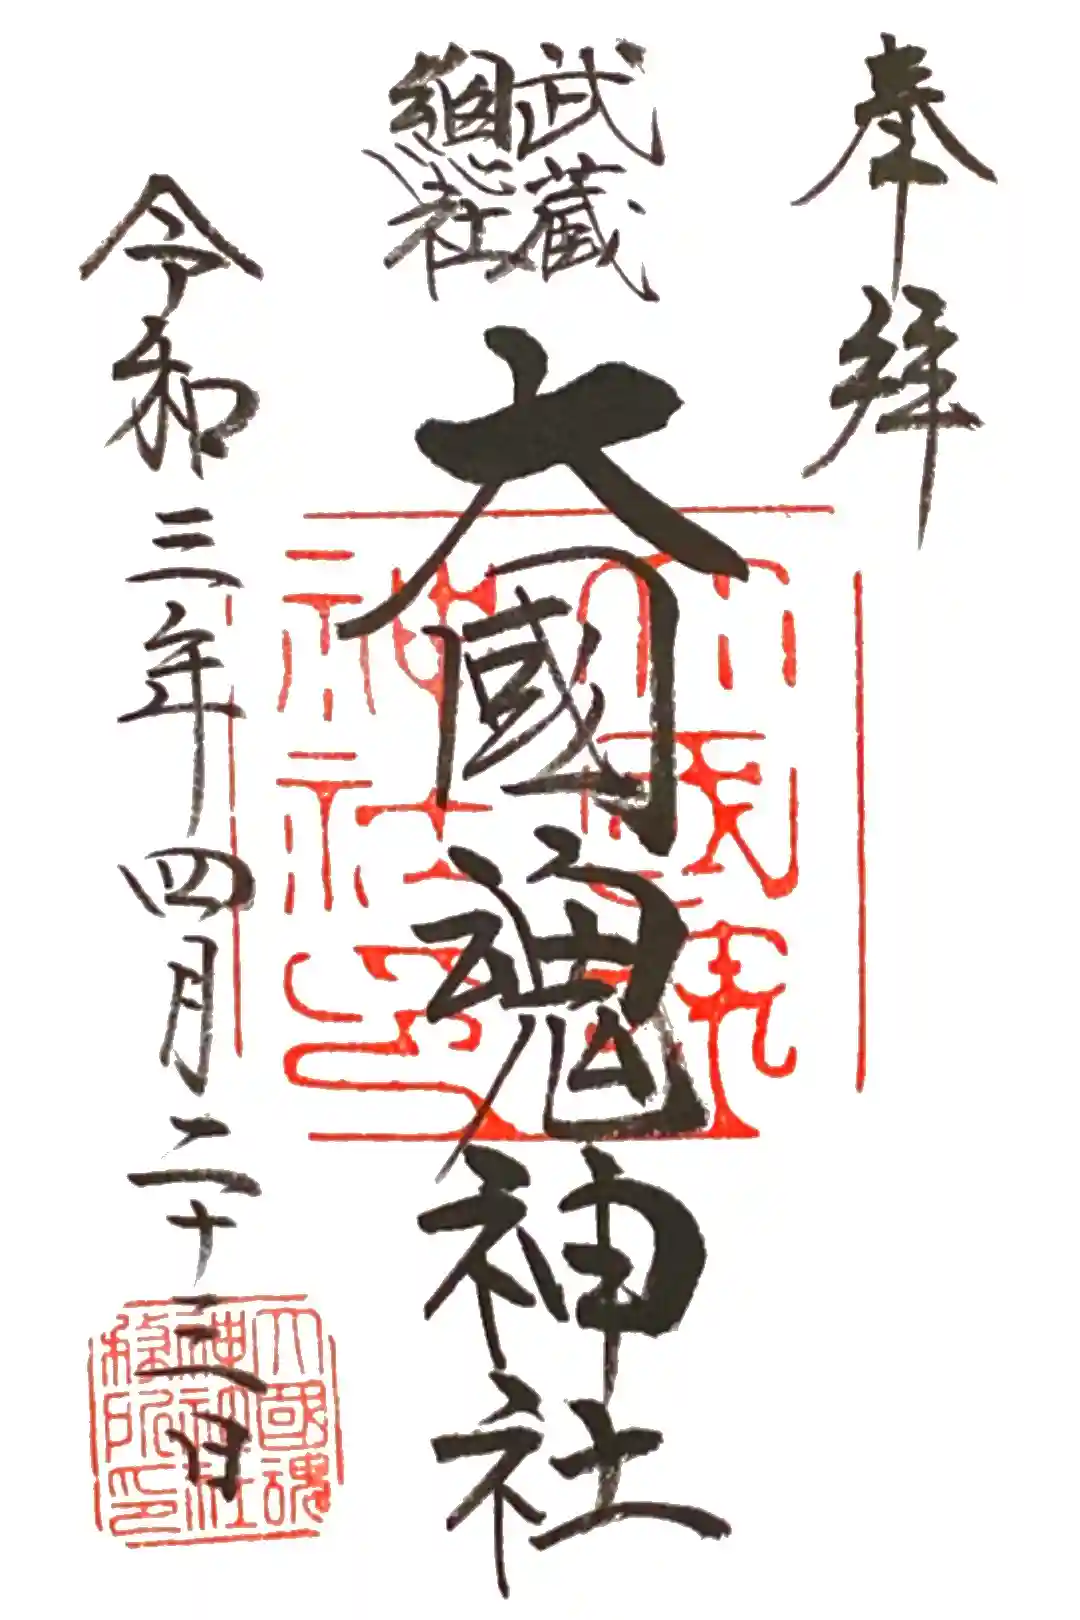 奉拝
武蔵
總社
大國魂神社
令和三年四月二十三日
大國魂
神社
務所印